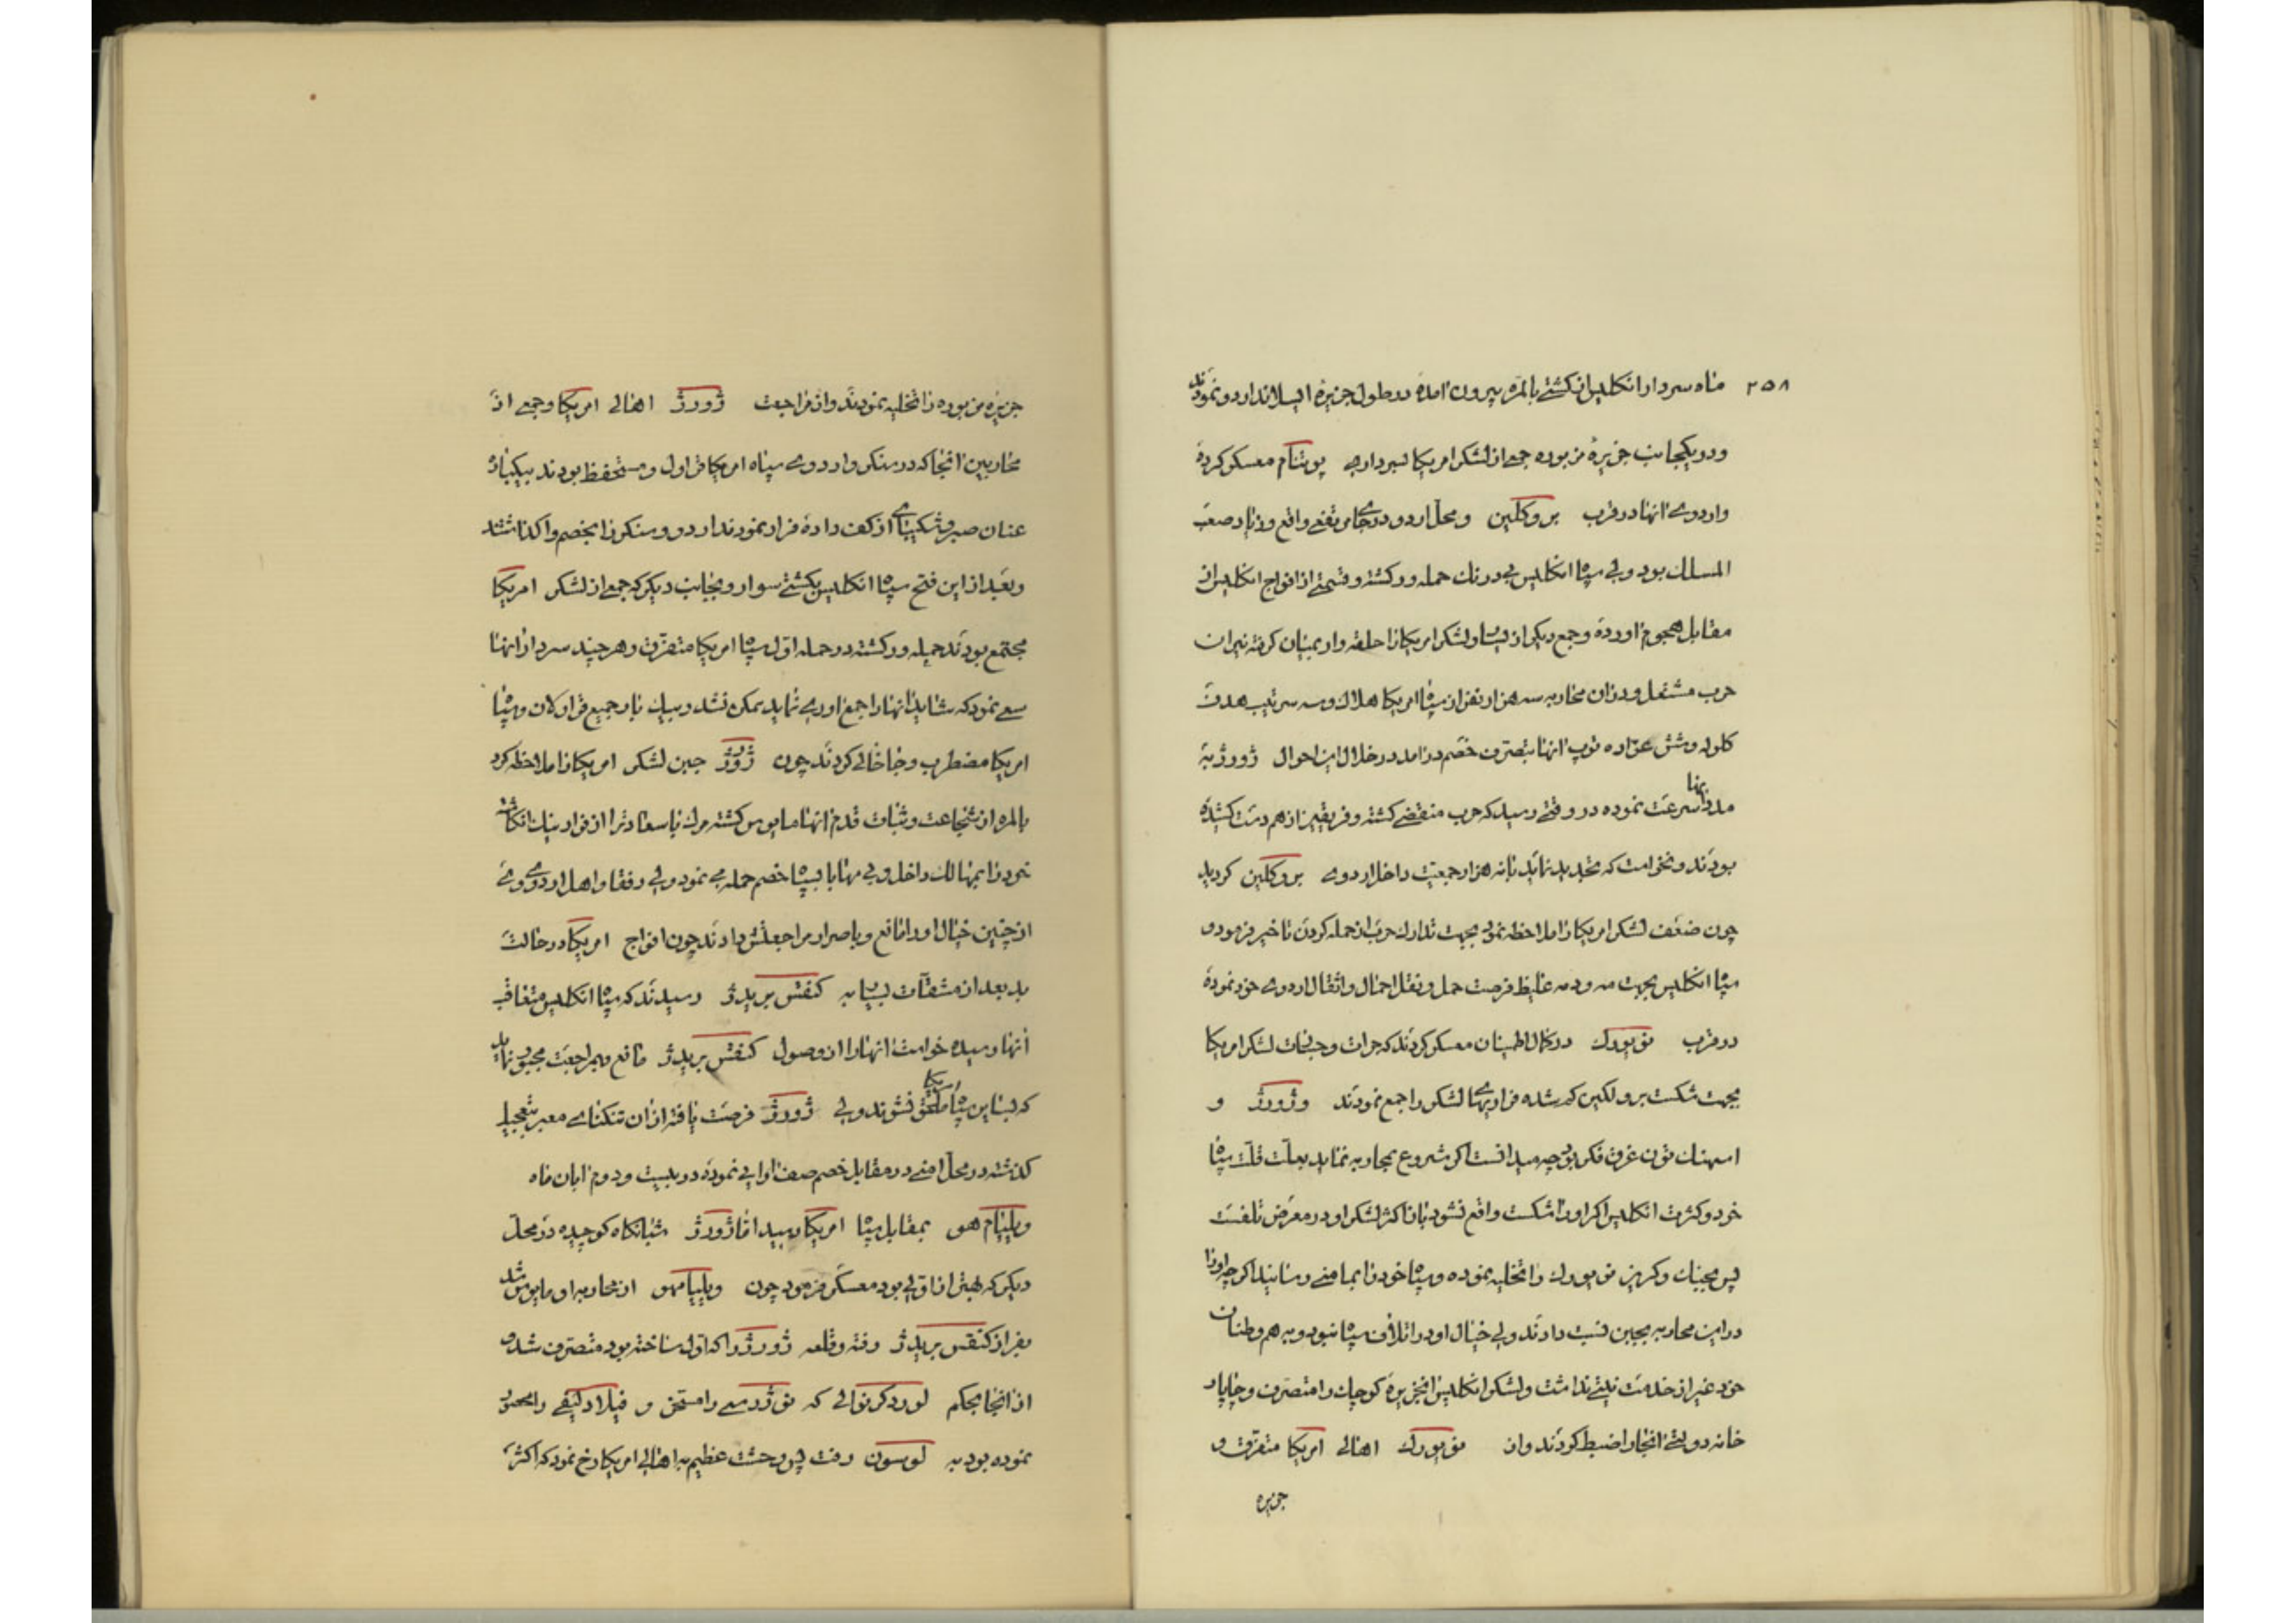 ۲۵۸ ماه سردار انکلیس از کشتے بالمره بیرون امده در طول جزیرۀ ایسلاند اردو نمودند
و در یکجانب جزیرۀ مزبوره جمعے از لشکر امریکا بسرداریے پوتنام معسکر کرده
و اردوے انها در قرب بروکلین و محل اردو در جاے مرتفعے واقع و زیاد صعب
المسلک بود ولی سپاه انکلیس بی درنک حمله ور کشته و قسمتے از افواج انکلیس از
مقابل هجوم اورده و جمع دیکر از لشکر امریکا را حلقه وار بمیان کرفته نیران
حرب مشتعل و در ان محاربه سه هزار نفر از سپاه امریکا هلاک و سه سرتیب هدف
کلوله و شش عراده توپ انها بتصرف خصم در امد در خلال این احوال ژورژ به
مدد انها سرعت نموده در وقتے رسید که حرب منقضے کشته و فریقین از هم دست کشیده
بودند و نخواست که تجدید نماید با نه هزار جمعیت داخل اردوے بروکلین کردید
چون ضعف لشکر امریکا را ملاحظه نمود بجهت تدارک حرب از حمله کردن تاخیر فرمود و
سپاه انکلیس بجهت مه و دمه غلیظ فرصت حمل و نقل احمال و اثقال اردوے خود نموده
در قرب نویورک در کمال اطمینان معسکر کردند که جرات و جسارت لشکر امریکا
بجهت شکست برولکین کم شده فراریهاے لشکر را جمع نمودند و ژورژ و
غرق فکر بود چه میدانست اکر شروع بمحاربه نماید بعلت قلت سپاه
خود و کثرت انکلیس اکر او را شکست واقع نشود باز اکثر لشکر او در معرض تلفست
پس بجنک و کریز نویورک را تخلیه نموده و سپاه خود را بمامنے رسانید اکرچه او را
در این محاربه بجبن نسبت دادند ولی خیال او در اتلاف سپاه نبود و به هم وطنان
خود غیر از خدمت نیتے نداشت و لشکر انکلیس انجزیرۀ کوچک را متصرف و چاپار
خانه دولتے انجا را ضبط کردند و از نویورک اهالے امریکا متفرق و
جزیره
جزیره مزبوره را تخلیه نمودند و از مراجعت ژورژ اهالے امریکا و جمعے از
محاربین انجا که در سنکر و اردوے سپاه امریکا قراول و مستحفظ بودند بیکباره
عنان صبر و شکیباے از کف داده فرار نمودند اردو و سنکر را بخصم واکذاشتند
و بعد از این فتح سپاه انکلیس بکشتے سوار و بجانب دیکر که جمعے از لشکر امریکا
مجتمع بودند حمله ور کشته در حمله اول سپاه امریکا متفرق و هر چند سردار انها
سعے نمود که شاید انها را جمع اورے نماید ممکن نشد و بیک بار جمیع قراولان و سپاه
امریکا مضطرب و جا خالے کردند چون ژورژ جبن لشکر امریکا را ملاحظه کرد
بالمره از شجاعت و ثبات قدم انها مایوس کشته مرک با سعادت را از فرار بنیک انکاشته
خود را بمهالک داخل و بی مهابا بسپاه خصم حمله مے نمود ولے رفقا و اهل اردوے وے
از چنین خیال او را مانع و باصرار مراجعتش دادند چون افواج امریکا در حالت
بد بعد از مشقات بسیار به کنقس بریدژ رسیدند که سپاه انکلیس متعاقب
انها رسیده خواست انها را از وصول کنقس بریدژ مانع و بمراجعت مجبور نماید
که بسایرین سپاه امریکا ملحق نشوند ولی ژورژ فرصت یافته از ان تنکناے معبر بتعجیل
کذشته در محل امنے در مقابل خصم صف ارایے نموده در بیست و دوم ابان ماه
ویلیام هو بمقابل سپاه امریکا رسید اما ژورژ شبانکاه کوچیده در محل
دیکر که بهتر از اولی بود معسکر فرمود چون ویلیام هو از محاربه او مایوس شد
بقرار کنقس بریدژ رفته و قلعه ژورژ را که اول ساخته بود متصرف شد و
از انجا بحکم لورد کرنوالے که نوژرسے را مستحق و فیلادلفے را محصور
نموده بود به لوسون رفت پس وحشت عظیم به اهالے امریکا رخ نمود که اکثر